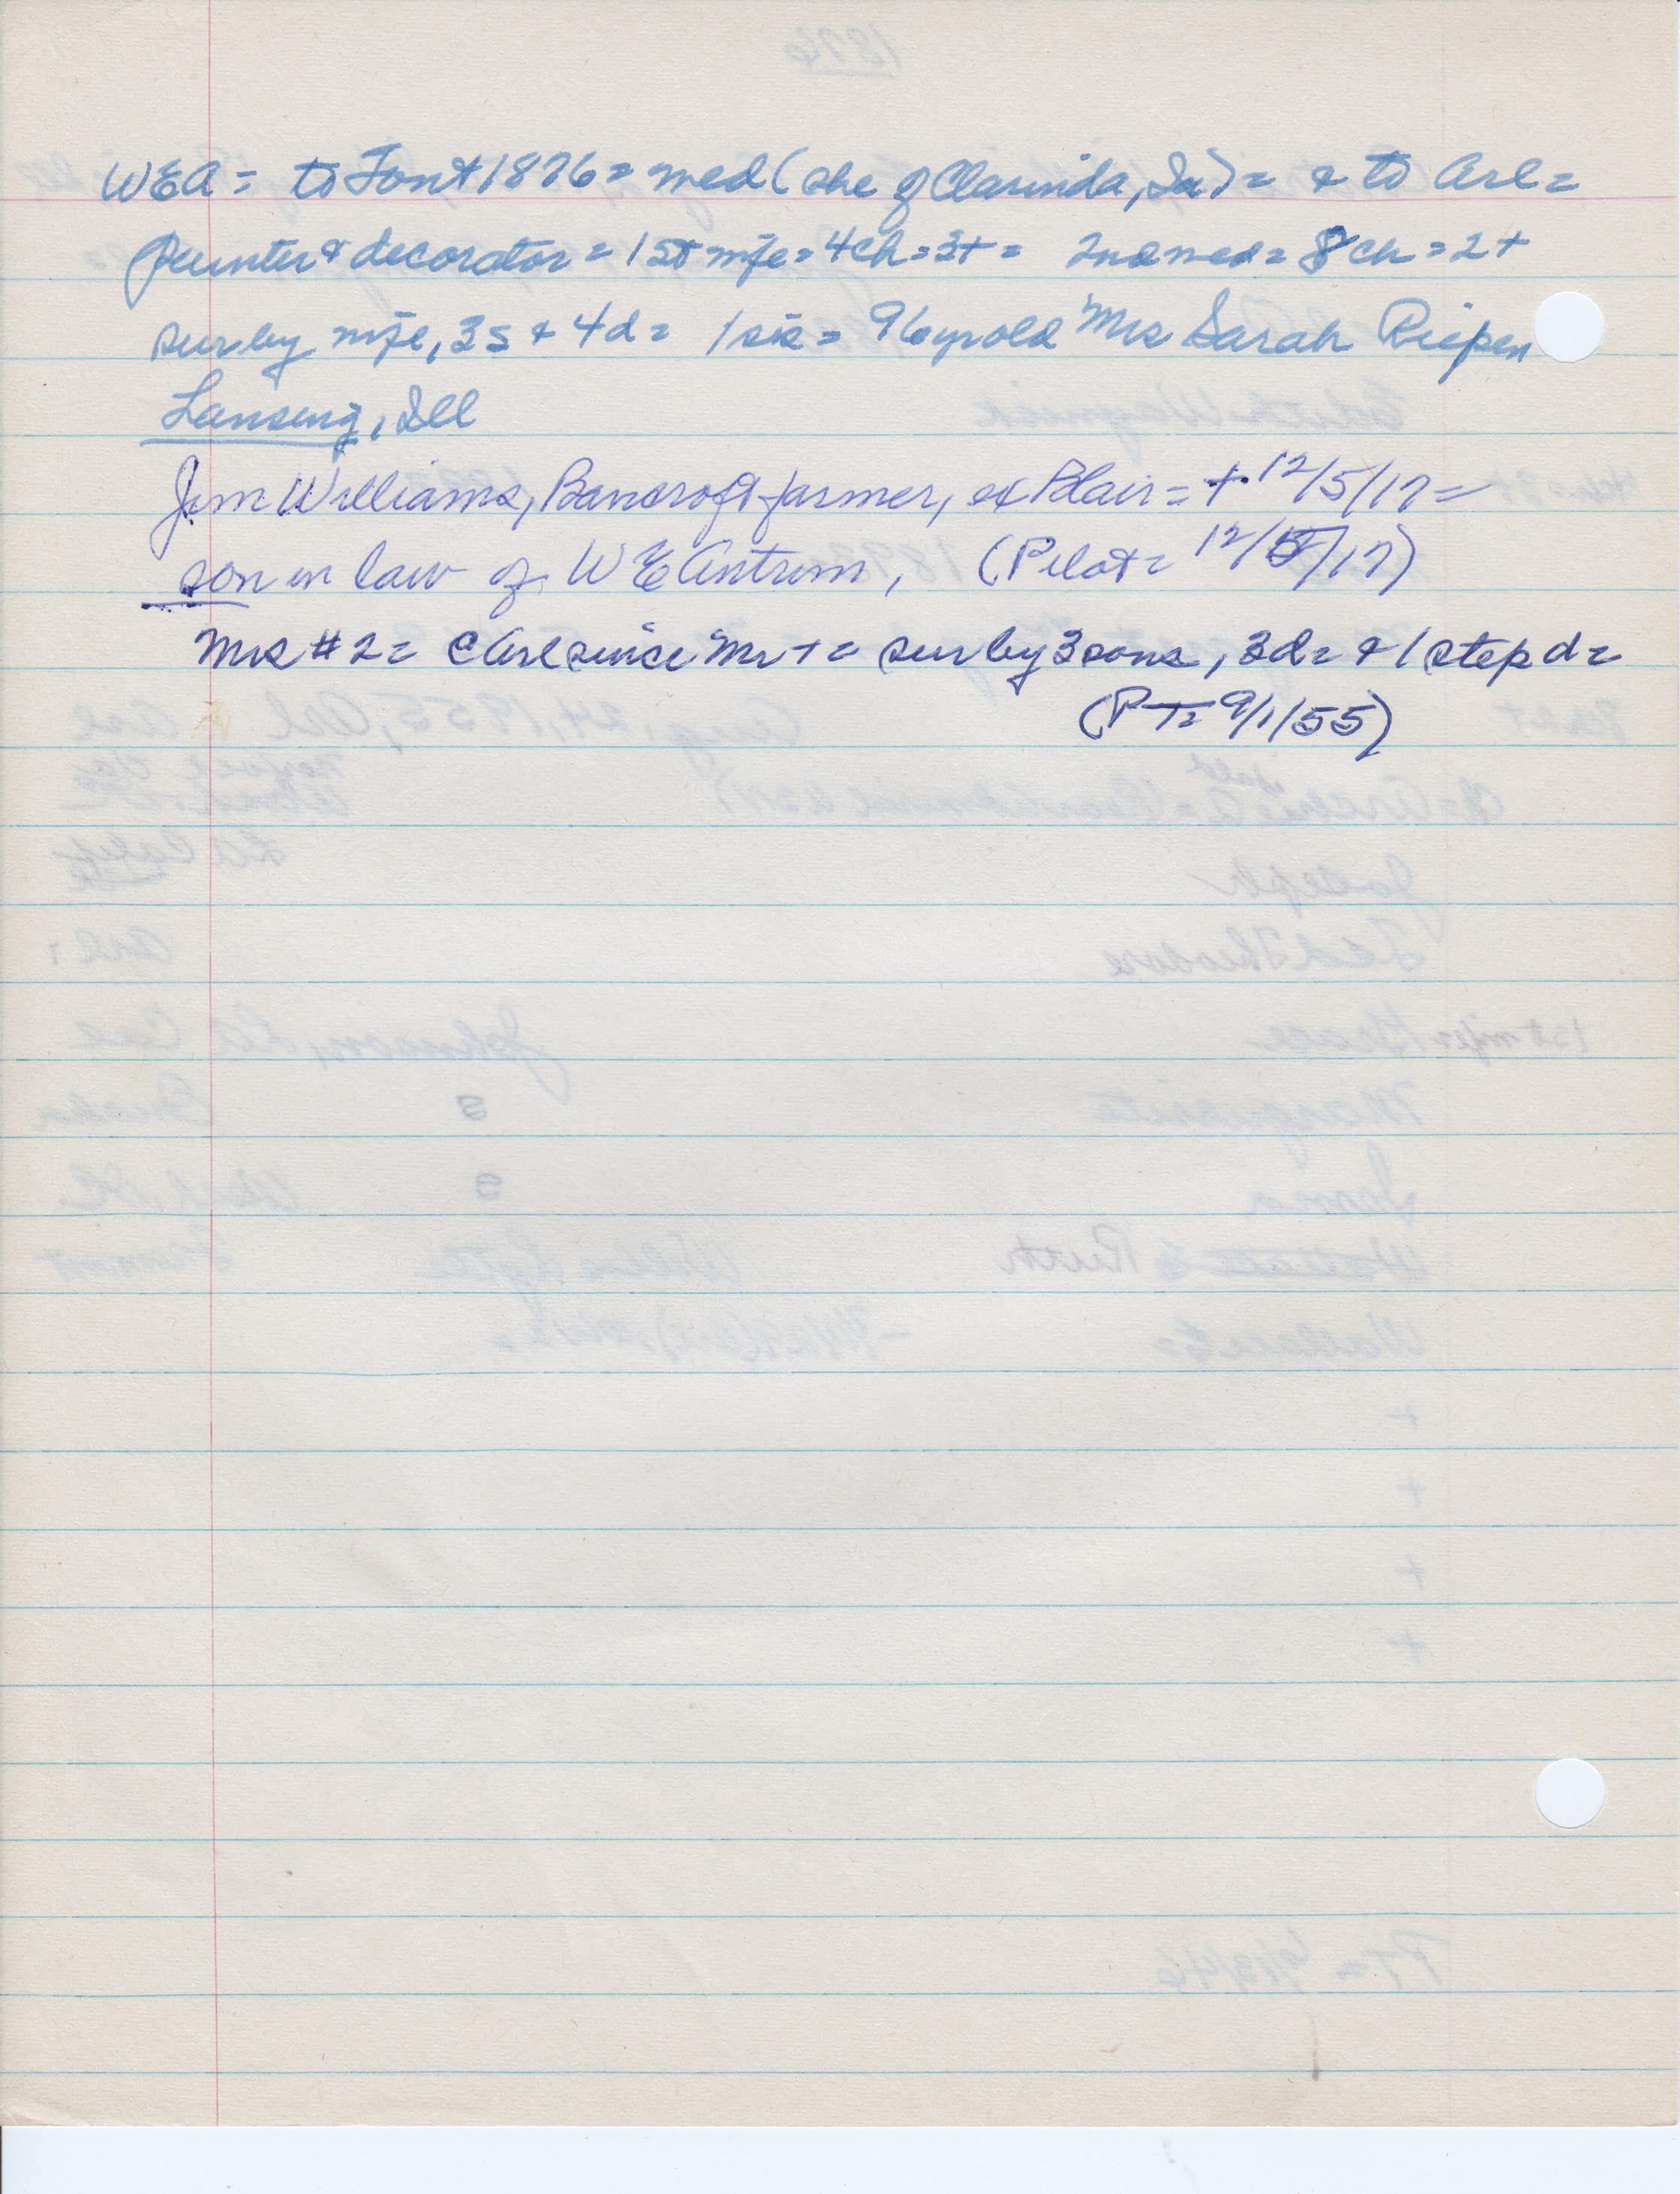 WEA = to Font 1876 = med (she of Clarinda, Ia) = & to Arl =
Painter & decorator = 1st wife = 4ch = 3+ = 2nd med = 8 ch = 2+
sur by wife, 3s & 4d = 1 sis = 96 yr old Mrs Sarah Riepen
Lansing, Ill
Jim Williams, Bancroft farmer, ex Blair = + 12/5/17 =
son in law of W E Antrim, (Pilot = 12/5/17)
Mrs #2 = c Arl since Mr + = sur by 3 sons, 3d = & 1 step d =
(PT = 9/1/55)